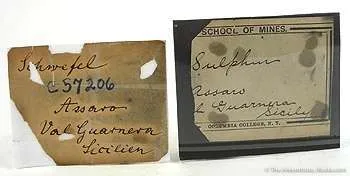 Schwefel
C57206
Assaro
Val Guarnera
Sicilien
SCHOOL OF MINES,
Sulphur
Assaro
Guarnera
Sicily
COLUMBIA COLLEGE, N. Y.